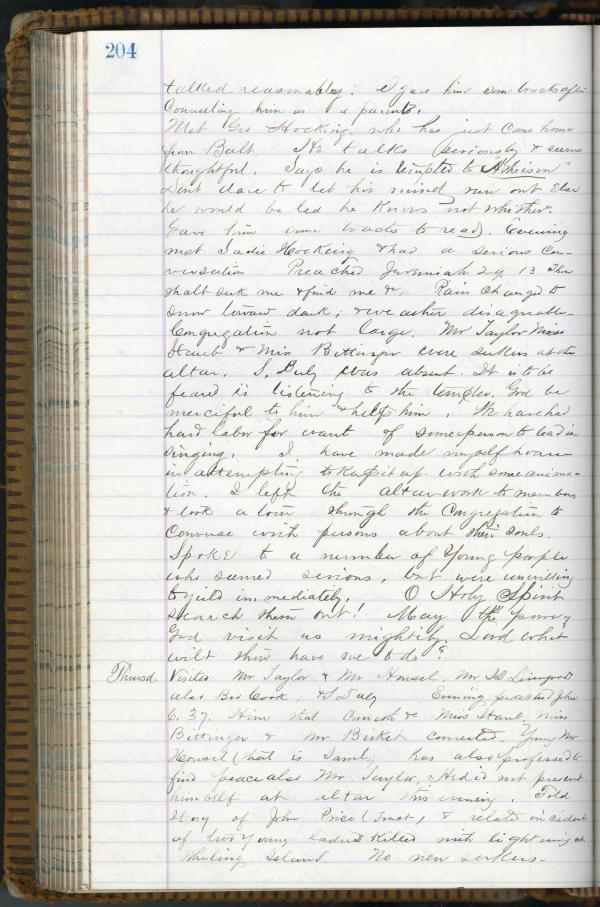 204
talked reasonably. I gave him some tracts after
Counseling him as a parent.
Met Geo Hocking who has just come home
from Balt. He talks seriously & seems
thoughtful. Says he is tempted to "Atheism"
dont dare to let his mind run out Else
he would be led he Knows not whither.
Gave him some tracts to read. Evening
met Sadie Hocking & had a serious con-
versation Preached Jeremiah 29, 13 Thou
shalt seek me & find me &c. Rain changed to
snow toward dark, & weather disagreeable
Congregation not large. Mr Taylor Misses
Staub & Miss Bittinger were seekers at the
altar. S. July was absent. It is to be
feared is listening to the tempter. God be
merciful to him & help him. We have had
hard labor for want of some person to lead in
Singing. I have made myself hoarse
in attempting to Keep it up with some anima-
tion. I left the altar work to members
& took a tour through the Congregation to
Converse with persons about their souls.
Spoke to a number of Young people
who seemed serious, but were unwilling
to yield immediately. O Holy Spirit
search them out! May the power
God visit us mightily. Lord what
wilt thou have me to do?
Thursd. Visited Mr Taylor & Mr Hansel, Mr
also Bro Cook, & S July Evening preached John
6. 37. Him that Cometh &c Miss Staub, Miss
Bittinger & Mr converted. Young Mr
Housel (that is Saml) has also professed to
find peace also Mr Taylor, did not present
himself at altar this evening. Told
Story of John Price (Tract, & related incident
of two Young ladies Killed with lightning at
Wheeling Island No new seekers-